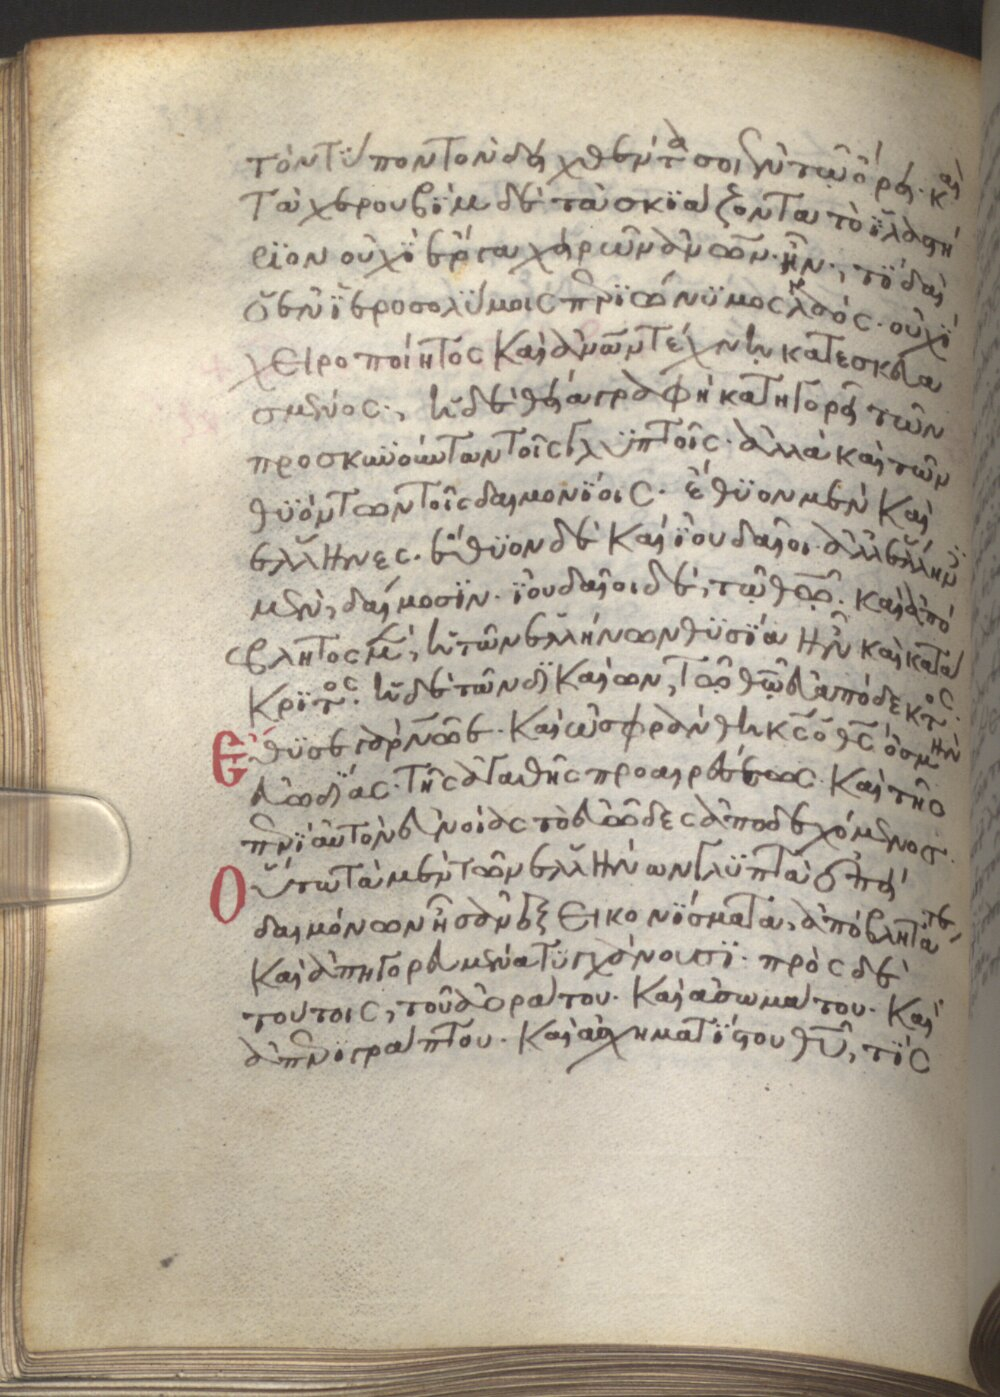 τὸν τύπον τὸν δειχθέντα σοι ἐν τῷ ὄρει· καὶ
τὰ χερουβὶμ δὲ τὰ σκιάζοντα τὸ ἱλαστή
ριον οὐχὶ ἔργα χειρῶν ἀνων ἦν· τί δαὶ
ὁ ἐν ἱεροσολύμοις περιώνυμος ναός· οὐχὶ
χειροποίητος καὶ ἀνων τέχνῃ κατεσκευα
σμένος· ἡ δὲ θεία γραφὴ κατηγορεῖ τῶν
προσκυνούντων τοῖς γλυπτοῖς· ἀλλὰ καὶ τῶν
θυόντων τοῖς δαιμονίοις· ἔθυον μὲν καὶ
ἕλληνες· ἔθυον δὲ καὶ ἰουδαῖοι· ἀλλ' ἕλληνες
μὲν, δαίμοσιν· ἰουδαῖοι δὲ, τῷ θεῷ· καὶ ἀπό
βλητος μὲν, ἡ τῶν ἑλλήνων θυσία ἦν καὶ κατά
κριτος· ἡ δὲ τῶν δικαίων, τῷ θῷ εὐαπόδεκτος·
Ἔθυσε γὰρ νῶε· καὶ ὠσφράνθη κς ὁ θς ὀσμὴν
εὐωδίας· τῆς ἀγαθῆς προαιρέσεως· καὶ τῆς
περὶ αὐτὸν εὐνοίας τὸ εὐῶδες ἀποδεχόμενος·
Οὕτω τὰ μὲν τῶν ἑλλήνων γλυπτὰ ἐπεὶ
δαιμόνων ἦσαν ἐξεικονίσματα, ἀπόβλητά τε
καὶ ἀπηγορευμένα τυγχάνουσι· πρὸς δὲ
τούτοις, τοῦ ἀοράτου· καὶ ἀσωμάτου· καὶ
ἀπεριγράπτου· καὶ ἀσχηματίστου θυ, τίς